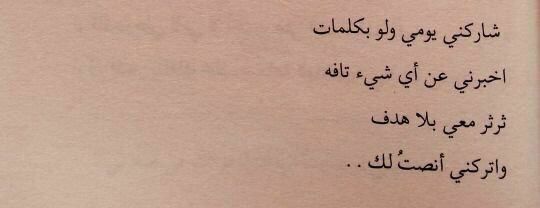 شاركني يومي ولو بكلمات
اخبرني عن أي شيء تافه
ثرثر معي بلا هدف
واتركني أنصتُ لك . .